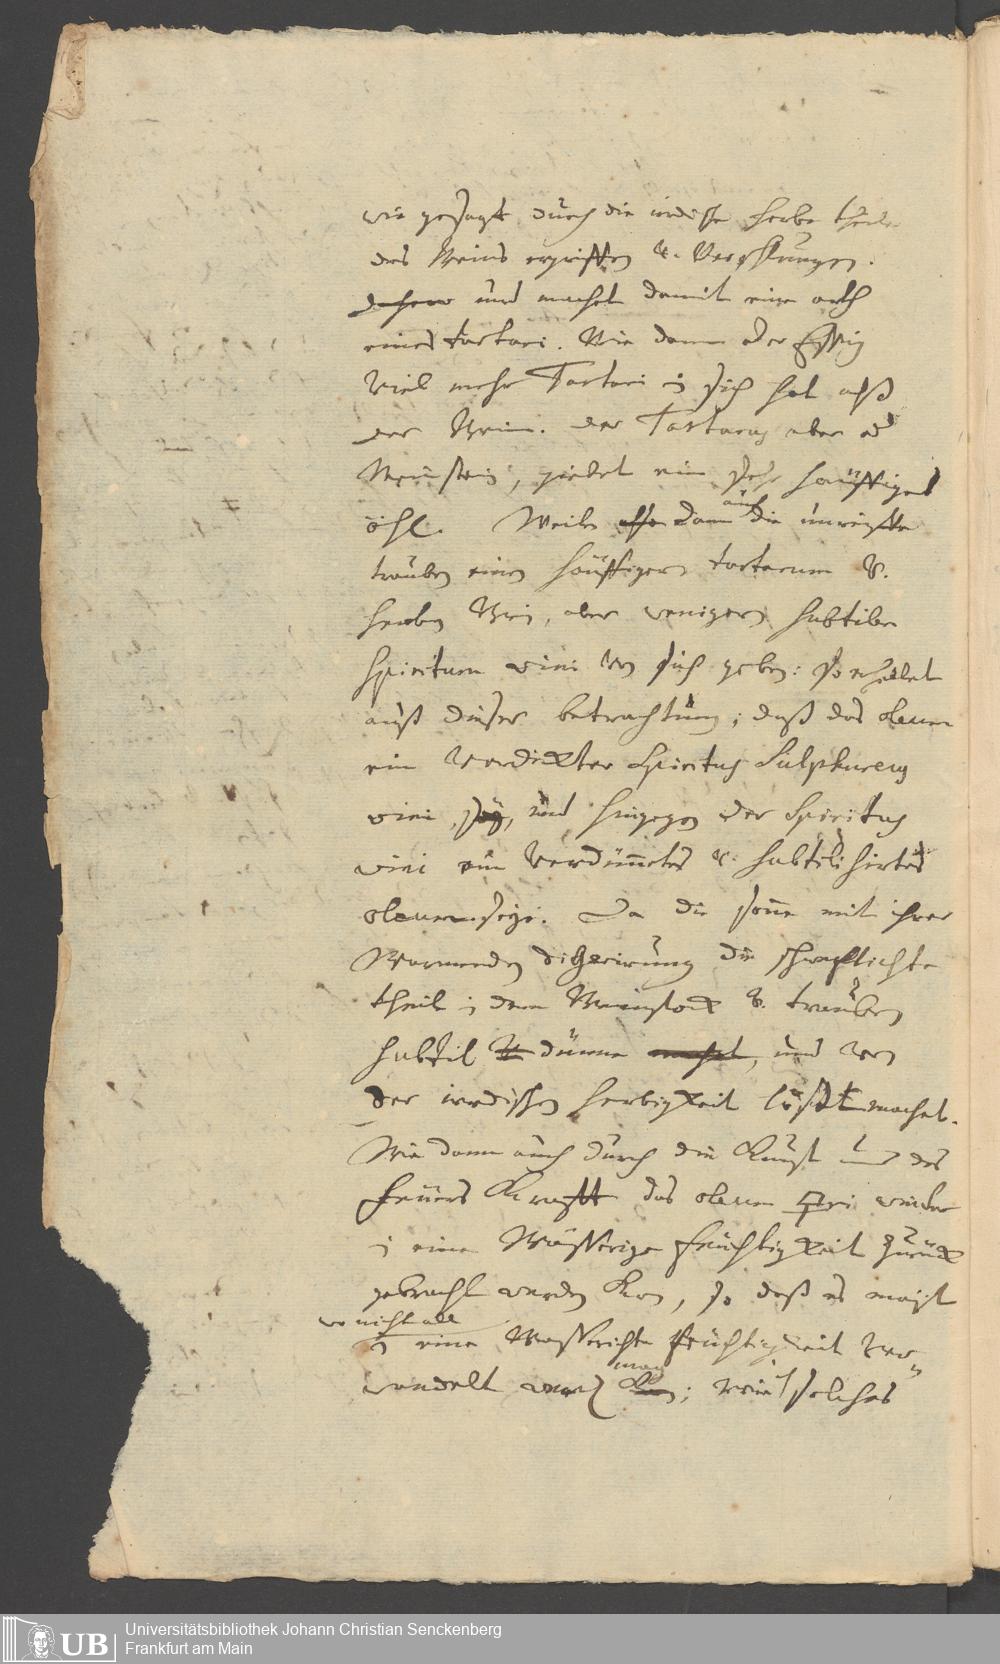 wie gesagt durch die irdische herbe theile
des Weins ergriffen &. Verschlungen.
dahero und machet damit eine arth
eines tartari. Wie dann der Essig
Viel mehr Tartari in sich hat alß
der Wein. der Tartarus aber od
Weinstein, giebet ein sehr häuffiges
öhl. Weile also dann auch die unreiffe
trauben einen häuffigern tartarum &.
herben Wein, aber wenigern subtilen
Spiritum vini von sich geben: So erhellet
auß dieser betrachtung; daß das oleum
ein Verdickter Spiritus Sulphureus
vini sey, und hingegen der Spiritus
vini ein Verdünnetes &. subtilisirtes
oleum seye. Da die sonne mit ihrer
Warmenden digerirung die schweflichte
theil in dem Weinstock &. trauben
subtil & dünne machet, und von
der irrdischen herbigkeit loß machet.
Wie dann auch durch die Kunst und des
feüers Krafft das oleum wieder
in eine Wässerige feuchtigkeit zurück
gebracht werden Kan, so daß es meist
wo nicht all
in eine Wasserichte feuchtigkeit Ver¬
wandelt werden mag; weil solches
Universitätsbibliothek Johann Christian Senckenberg
Frankfurt am Main
UB